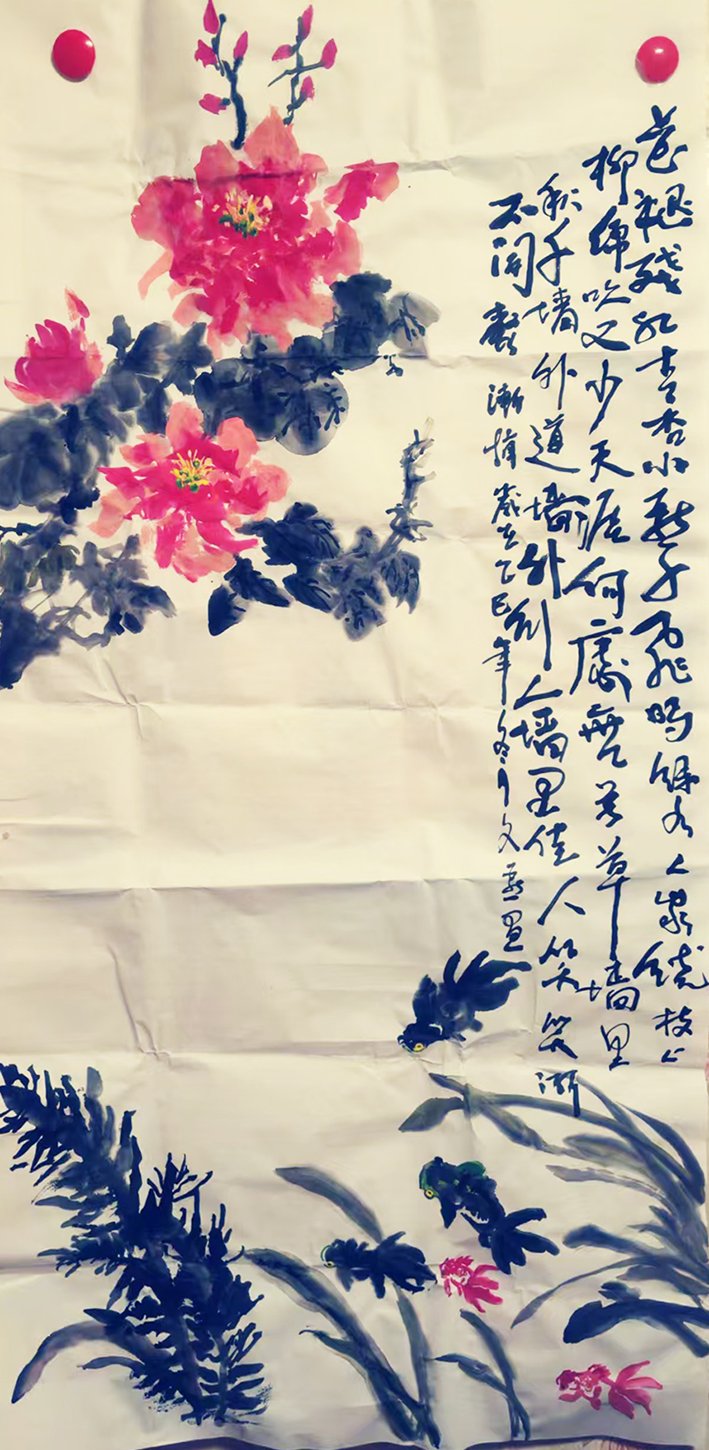 花褪残红青杏小燕子飞时绿水人家绕枝上
柳绵吹又少天涯何處無芳草墙里
秋千墙外道墙外行人墙里佳人笑笑渐
不闻聲渐悄歲在乙巳年冬月文